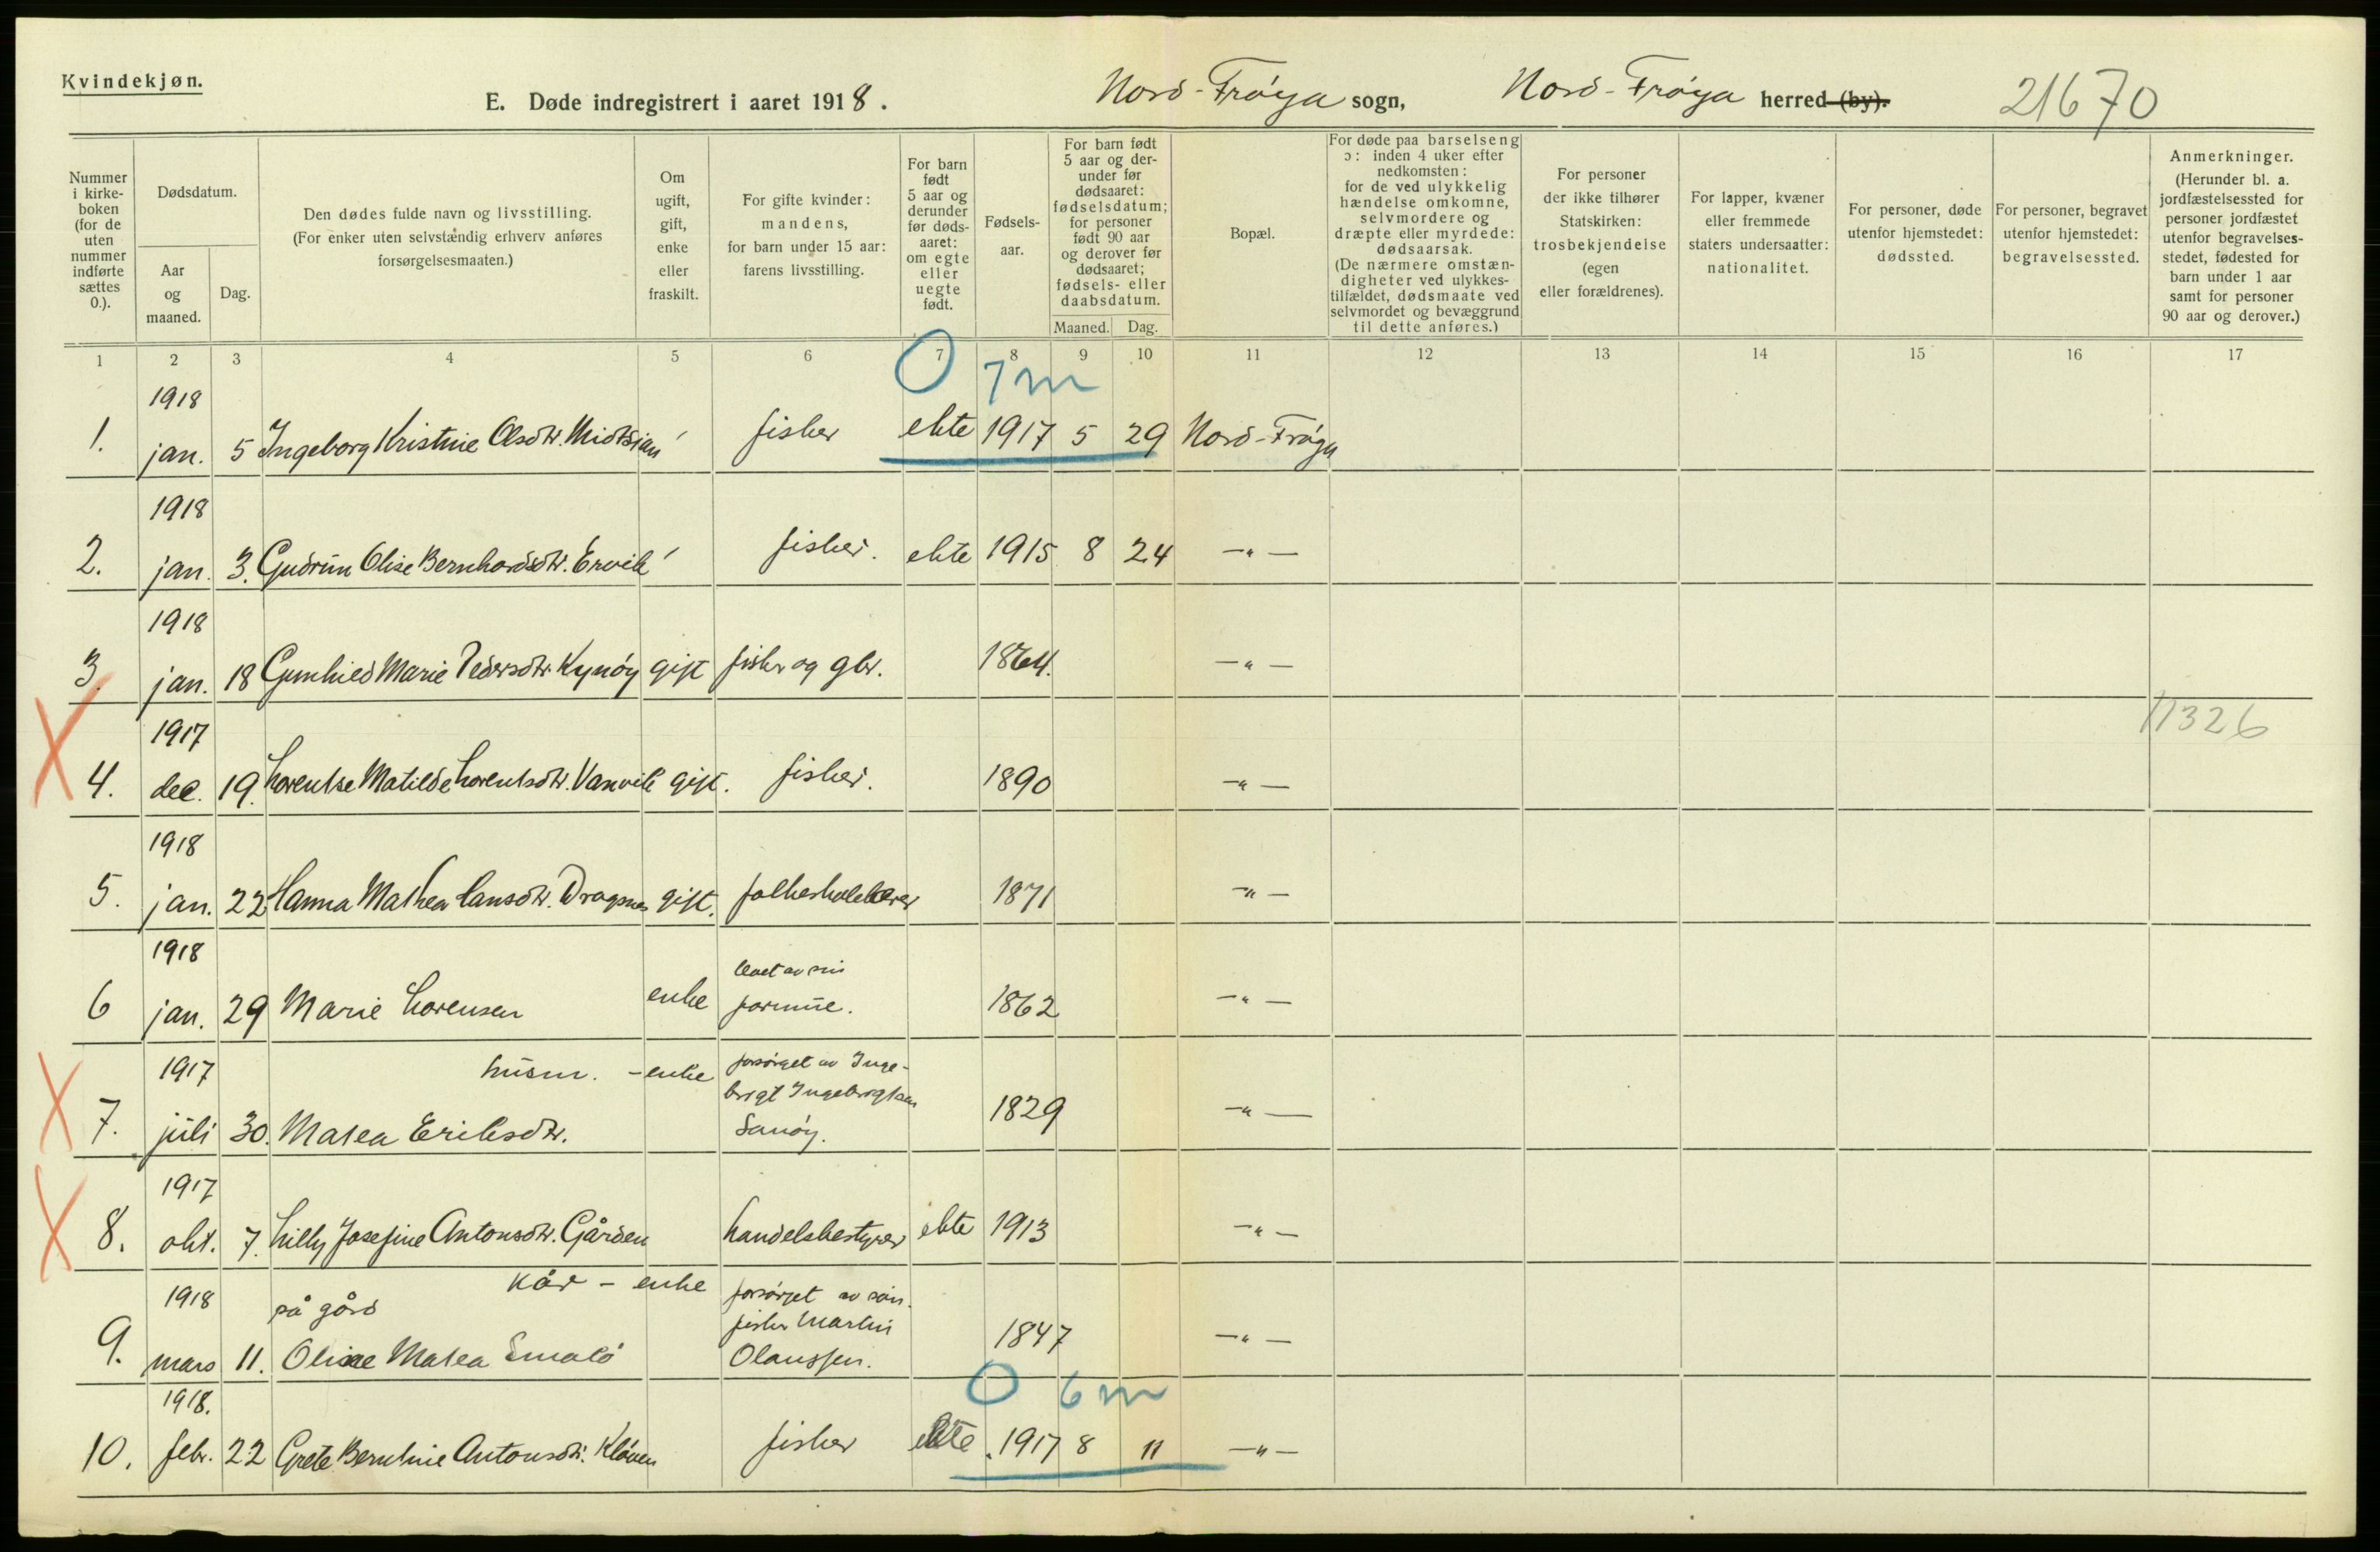 Kvindekjøn.
E. Døde indregistrert i aaret 1918. Nord-Frøya sogn, Nord-Frøya herred (by). 21670
Nummer i kirke-boken (for de uten nummer indførte sættes 0.).
Dødsdatum.
Aar og maaned.
Dag.
Den dødes fulde navn og livsstilling.
(For enker uten selvstændig erhverv anføres forsørgelsesmaaten.)
Om ugift, gift, enke eller fraskilt.
For gifte kvinder: mandens, for barn under 15 aar: farens livsstilling.
For barn født 5 aar og derunder før døds-aaret: om egte eller uegte født.
Fødsels-aar.
For barn født 5 aar og der-under før dødsaaret: fødselsdatum; for personer født 90 aar og derover før dødsaaret; fødsels- eller daabsdatum.
Maaned. Dag.
Bopæl.
For døde paa barselseng ɔ: inden 4 uker efter nedkomsten: for de ved ulykkelig hændelse omkomne, selvmordere og dræpte eller myrdede: dødsaarsak.
(De nærmere omstæn-digheter ved ulykkes-tilfældet, dødsmaate ved selvmordet og bevæggrund til dette anføres.)
For personer der ikke tilhører Statskirken: trosbekjendelse (egen eller forældrenes).
For lapper, kvæner eller fremmede staters undersaatter: nationalitet.
For personer, døde utenfor hjemstedet: dødssted.
For personer, begravet utenfor hjemstedet: begravelsessted.
Anmerkninger.
(Herunder bl. a. jordfæstelsessted for personer jordfæstet utenfor begravelses-stedet, fødested for barn under 1 aar samt for personer 90 aar og derover.)
1 2 3 4 5 6 7 8 9 10 11 12 13 14 15 16 17
0 7 m
1918
1. jan. 5 Ingeborg Kristine Olsdtr. fisker ekte 1917 5 29 Nord-Frøya
1918
2. jan. 3. Gudrun Olise Bernhardsdtr. Ervik fisker. ekte 1915 8 24 —"—
1918
3. jan. 18 Gunhild Marie Pedersdtr. Kynøy gift fisker og gbr. 1864. —"—
1917 11326
4. dec. 19. Lorentse Matilde Lorentsdtr. Vanvik gift. fisker. 1890 —"—
1918
5. jan. 22 Hanna Mathea Hansdtr. Dragsnes gift. folkeskolelærer 1871 —"—
1918 levet av sin
6 jan. 29 Marie Lorensen enke formue. 1862 —"—
1917 husm. - enke forsørget av Inge-
brigt Ingebrigtsen
7. juli 30. Matea Eriksdtr. Sanøy. 1829 —"—
1917
8. okt. 7. Lilly Josefine Antonsdtr. Gården handelsbestyrer ekte 1913 —"—
kår - enke forsørget av søn.
1918 på gård fisker Martin
9. mars 11. Oline Matea Smalø Olaussen. 1847 —"—
1918. 0 6 m
10. febr. 22 Grete Berntine Antonsdtr. Kløven fisker ekte 1917 8 11 —"—